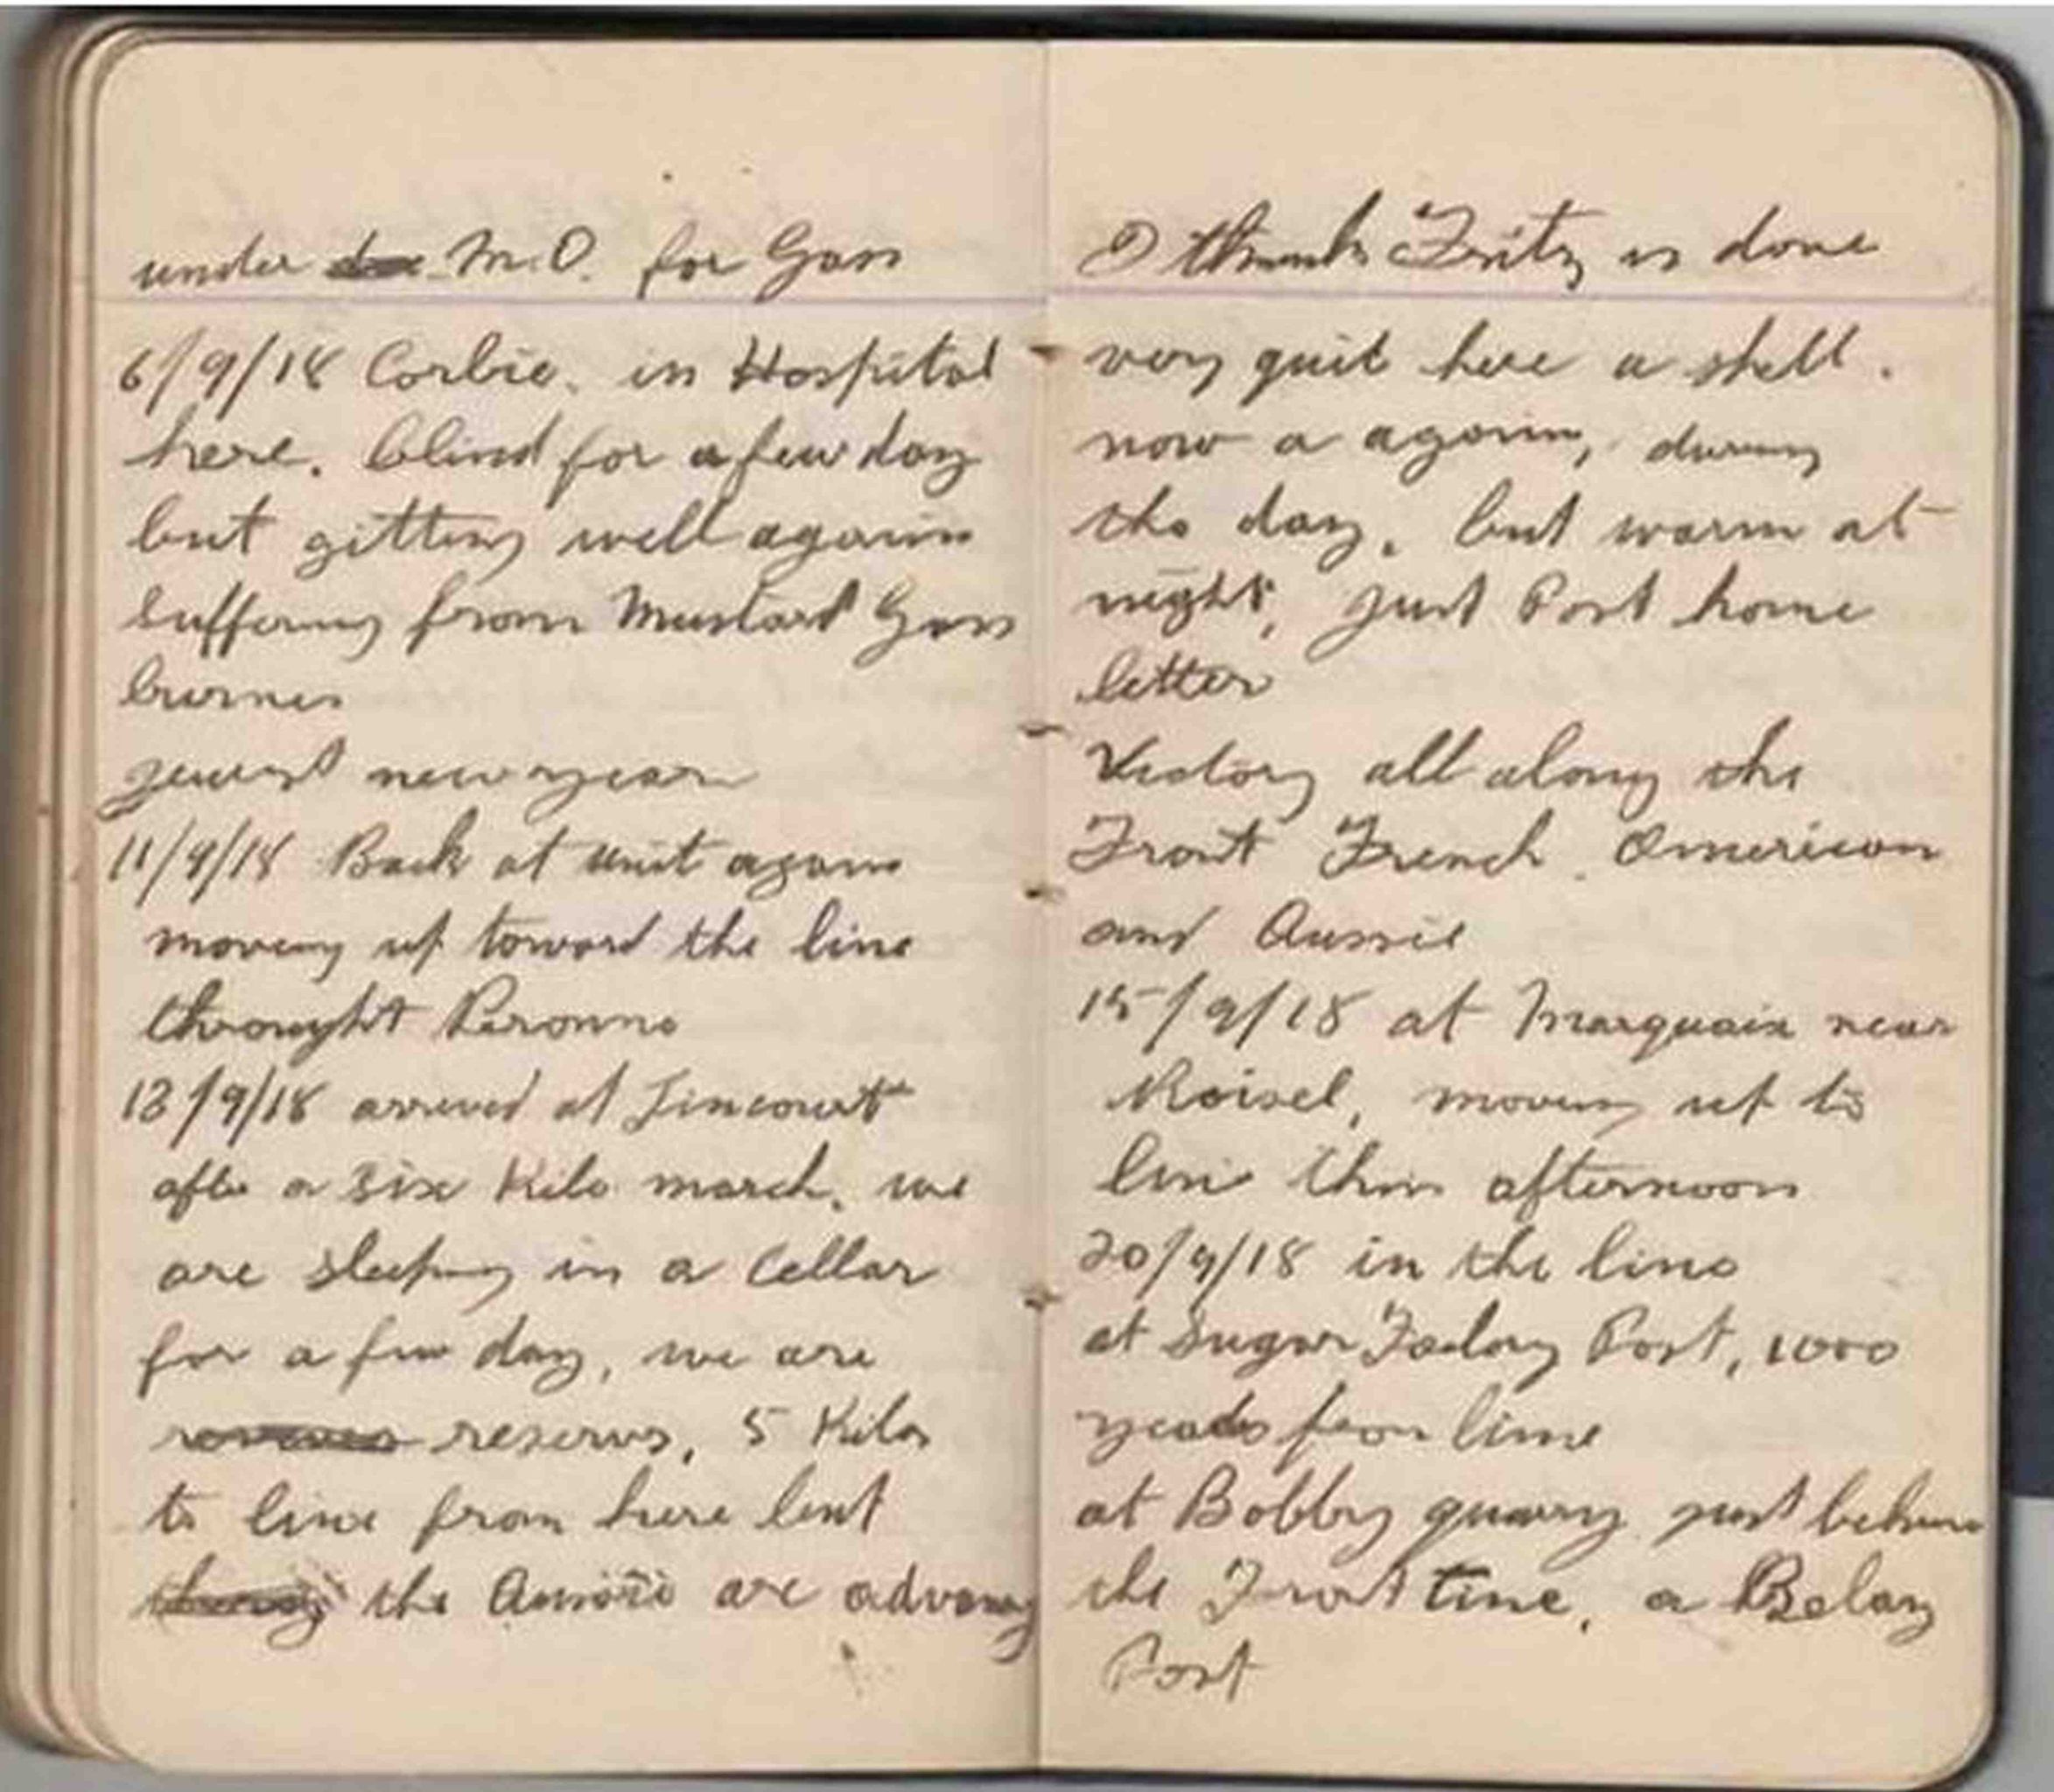 under M.O. for Gass
6/9/18 Corbie. in Hospital
here. blind for a few day
but gitting well again
suffering from Mustard Gass
burnes
jewest new year
11/9/18 Back at unit again
moveing up toward the line
throught Peronne
13/9/18 arrived at Tincourt
after a six Kilo march. we
are sleeping in a Cellar
for a few day, we are
reserves, 5 Kilos
to line from here but
the Aussie are advancing
I think Fritz is done
very quit here a shell.
now a again, during
the day. but warm at
night, just Post home
letter
Victory all along the
Front French. American
and Aussie
15/9/18 at Marquaix near
Roisel, moveing up to
line this afternoon
20/9/18 in the line
at Sugar Factory Post, 1000
yeads from line
at Bobby quarry just behind
the Front line, a Relay
Post